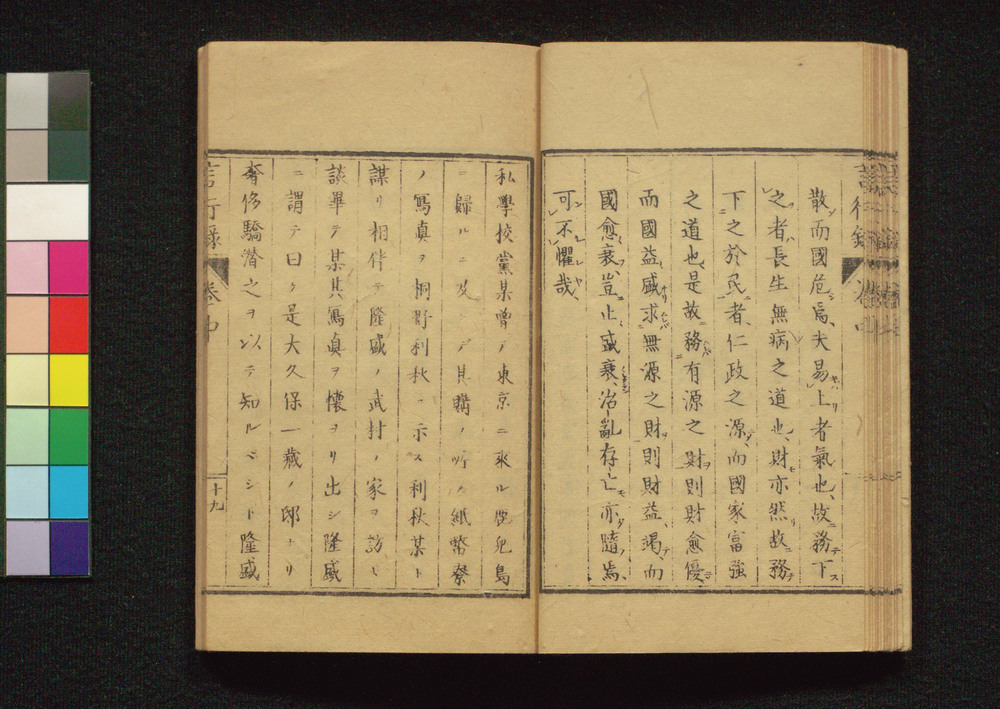 散而國危焉、夫易上者氣也、故務下
之者長生無病之道也、財亦然故務
下之於民者、仁政之源而國家富強
之道也是故務有源之財則財愈優
而國益盛求無源之財則財益竭而
國愈衰、豈止盛衰治亂存亡亦隨焉、
可不懼哉
私學校黨某曾ノ東京ニ來ル鹿兒島
ニ歸ルニ及デ其購ノ所ノ紙幣寮
ノ寫真ヲ桐野利秋ニ示ス利秋某ト
謀リ相伴テ隆盛ノ武村ノ家ヲ訪ヒ
談畢テ某其寫真ヲ懷ヨリ出シ隆盛
ニ謂テ曰ク是大久保一藏ノ邸ナリ
奢侈驕僭之ヲ以テ知ルベシト隆盛
言行錄
卷中
十九